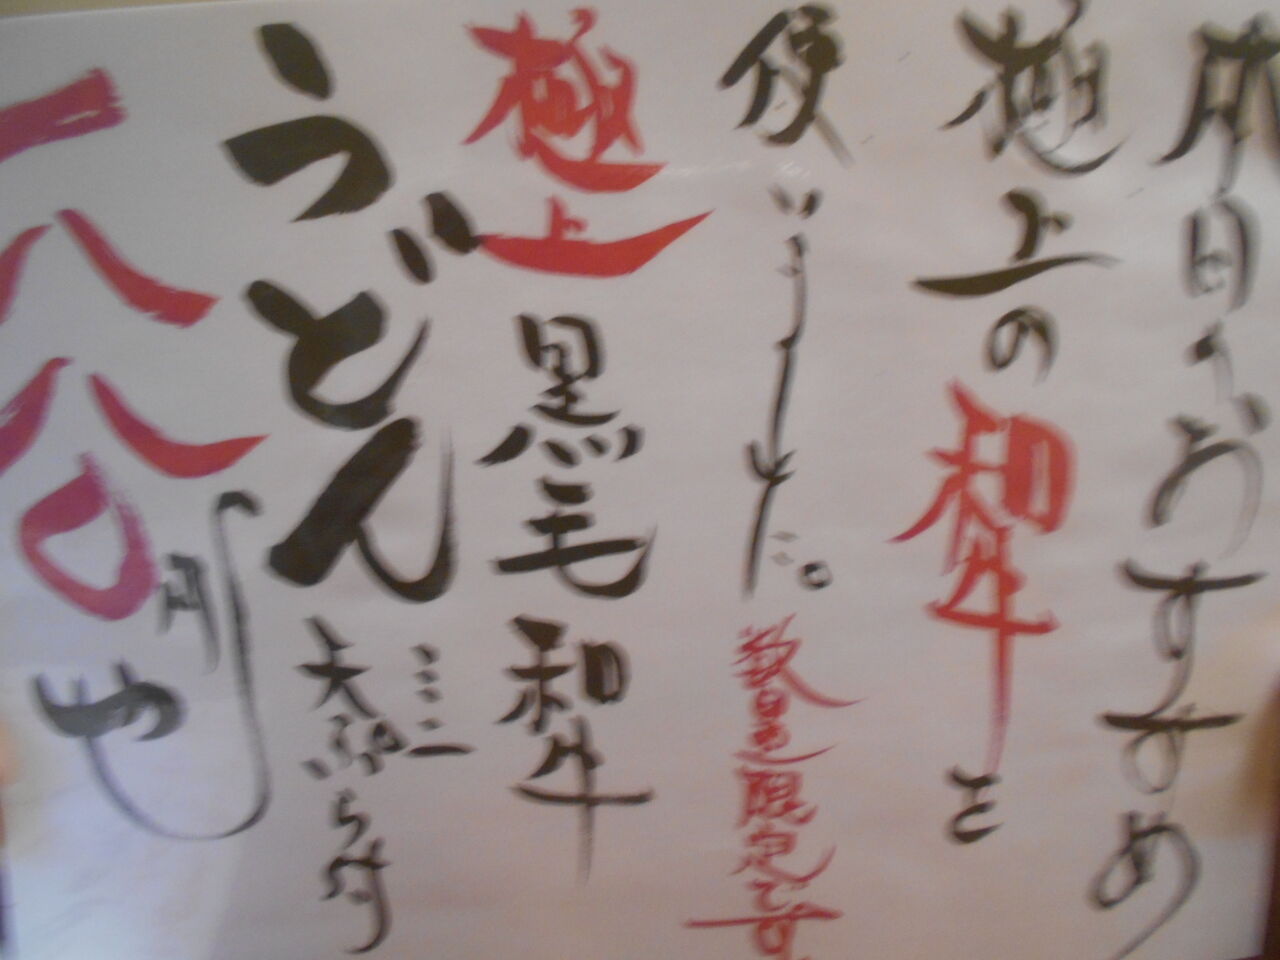 本日のおすすめ
極上の和牛を
使いました。数量限定です
極上黒毛和牛
うどん ミニ天ぷら付
一八八〇円也